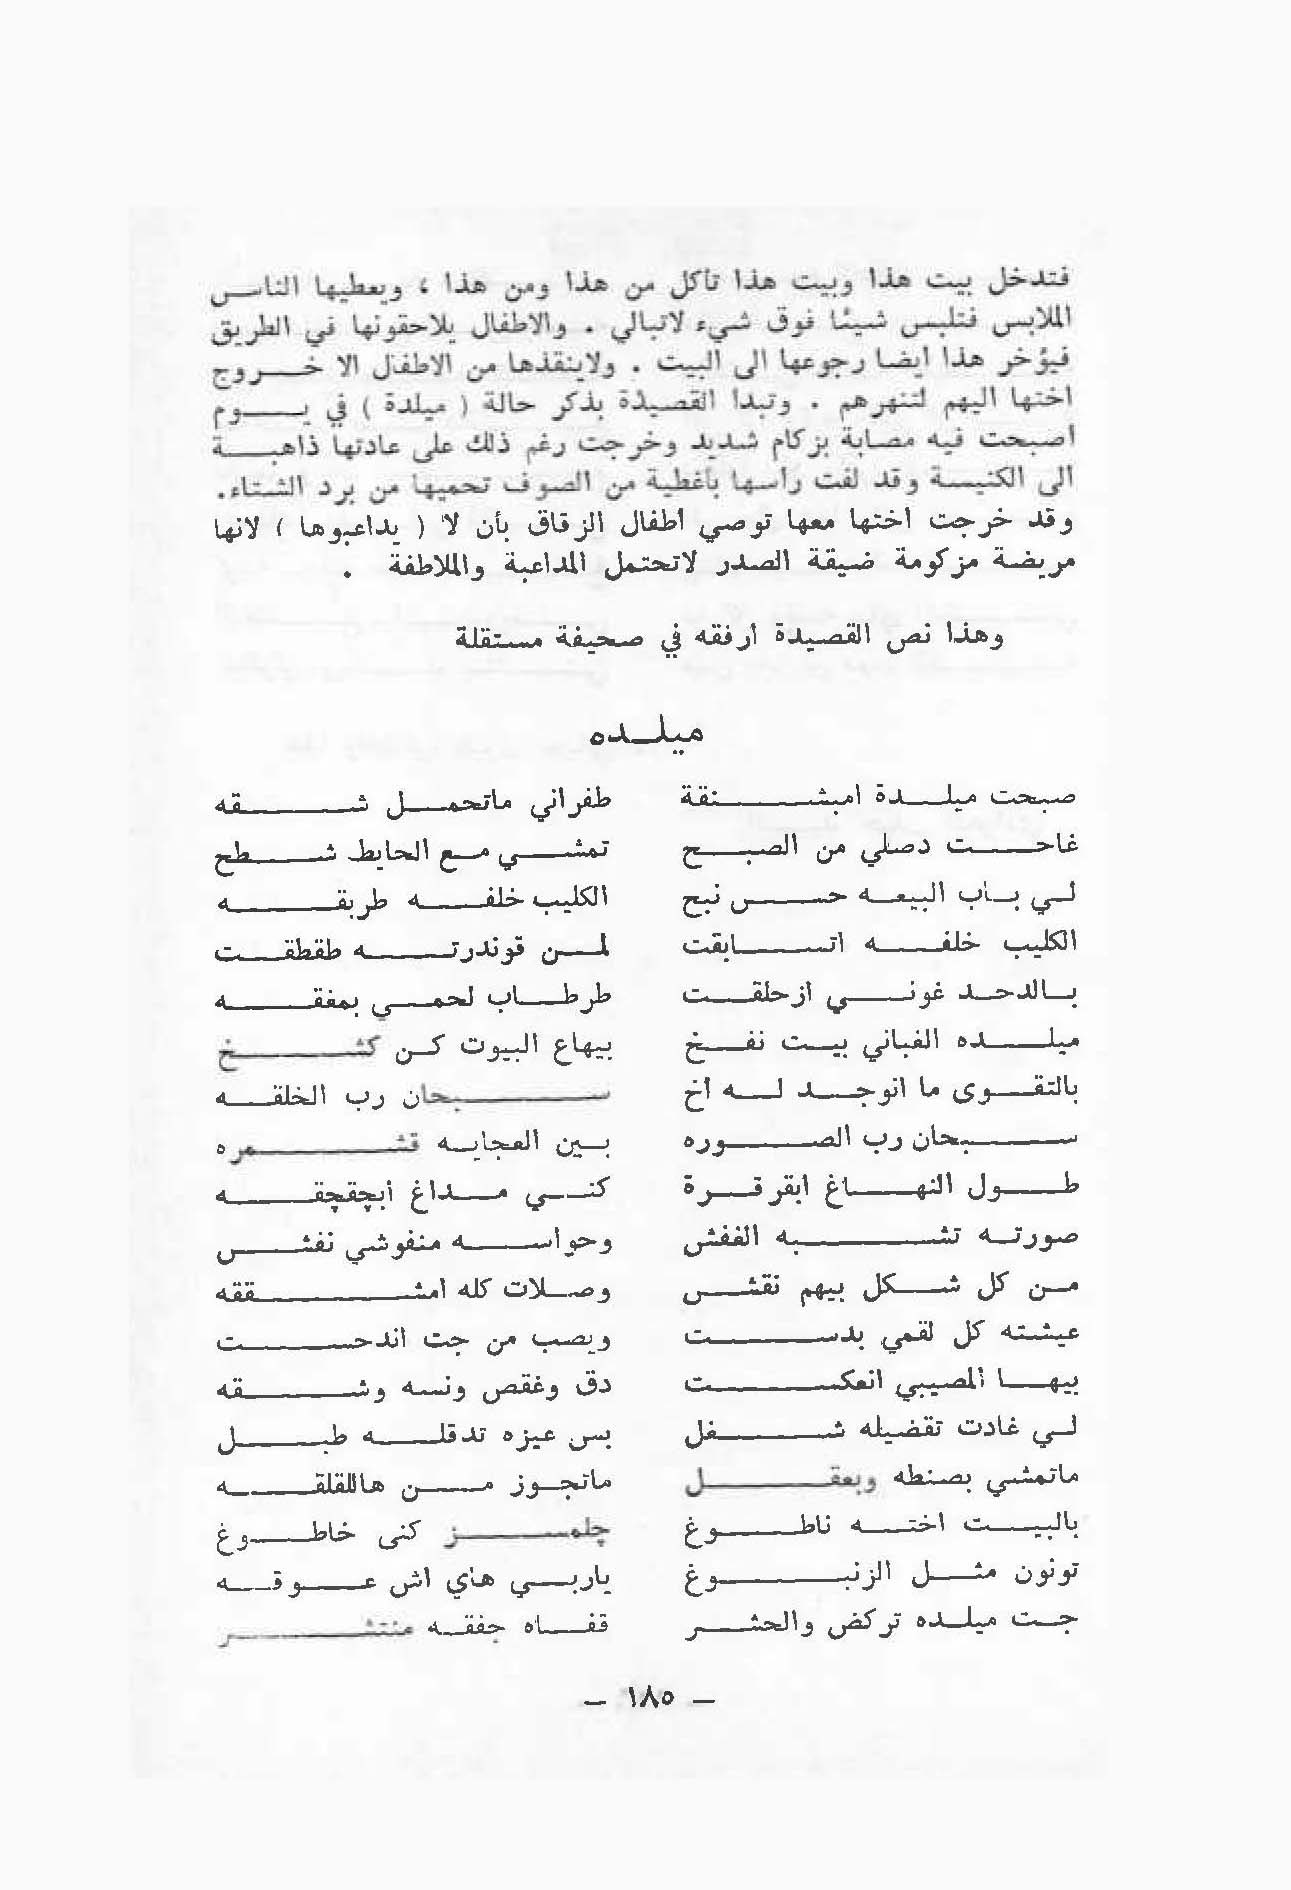 فتدخل بيت هذا وبيت هذا تأكل من هذا ومن هذا ، ويعطيها الناس
الملابس فتلبس شيئا فوق شيء لاتبالي . والاطفال يلاحقونها في الطريق
فيؤخر هذا ايضا رجوعها الى البيت . ولاينقذها من الاطفال الا خروج
اختها اليهم لتنهرهم . وتبدا القصيدة بذكر حالة ( ميلدة ) في يوم
اصبحت فيه مصابة بزكام شديد وخرجت رغم ذلك على عادتها ذاهبة
الى الكنيسة وقد لفت رأسها بأغطية من الصوف تحميها من برد الشتاء.
وقد خرجت اختها معها توصي اطفال الزقاق بأن لا ( يداعبوها ) لانها
مريضة مزكومة ضيقة الصدر لاتحتمل المداعبة والملاطفة .
وهذا نص القصيدة ارفقه في صحيفة مستقلة
ميلده
صبحت ميلدة امبشنقة طفراني ماتحمل شقه
غاحت دصلي من الصبح تمشي مع الحايط شطح
لي باب البيعه حس نبح الكليب خلفه طربقه
الكليب خلفه اتسابقت لمن قوندرته طقطقت
بالدحد غوني ازحلقت طرطاب لحمي بمفقه
ميلده الفباني بيت نفخ بيهاع البيوت كن كشخ
بالتقوى ما انوجد له اخ سبحان رب الخلقه
سبحان رب الصوره بين العجايه قشمره
طول النهاغ ابقرقرة كني مداغ أبچقچقه
صورته تشبه الففش وحواسه منفوشي نفش
من كل شكل بيهم نقش وصلات كله امشققه
عيشته كل لقمي بدست ويصب من جت اندحت
بيها المصيبي انعكست دق وغقص ونسه وشقه
لي غادت تقضيله شغل بس عيزه تدقله طبل
ماتمشي بصنطه وبعقل ماتجوز من هاللقلقه
بالبيت اخته ناطوغ چلمز كنى خاطوغ
تونون مثل الزنبوغ ياربي هاي اش عوقه
جت ميلده تركض والحشر قفاه جفقه منتشر
– ١٨٥ –